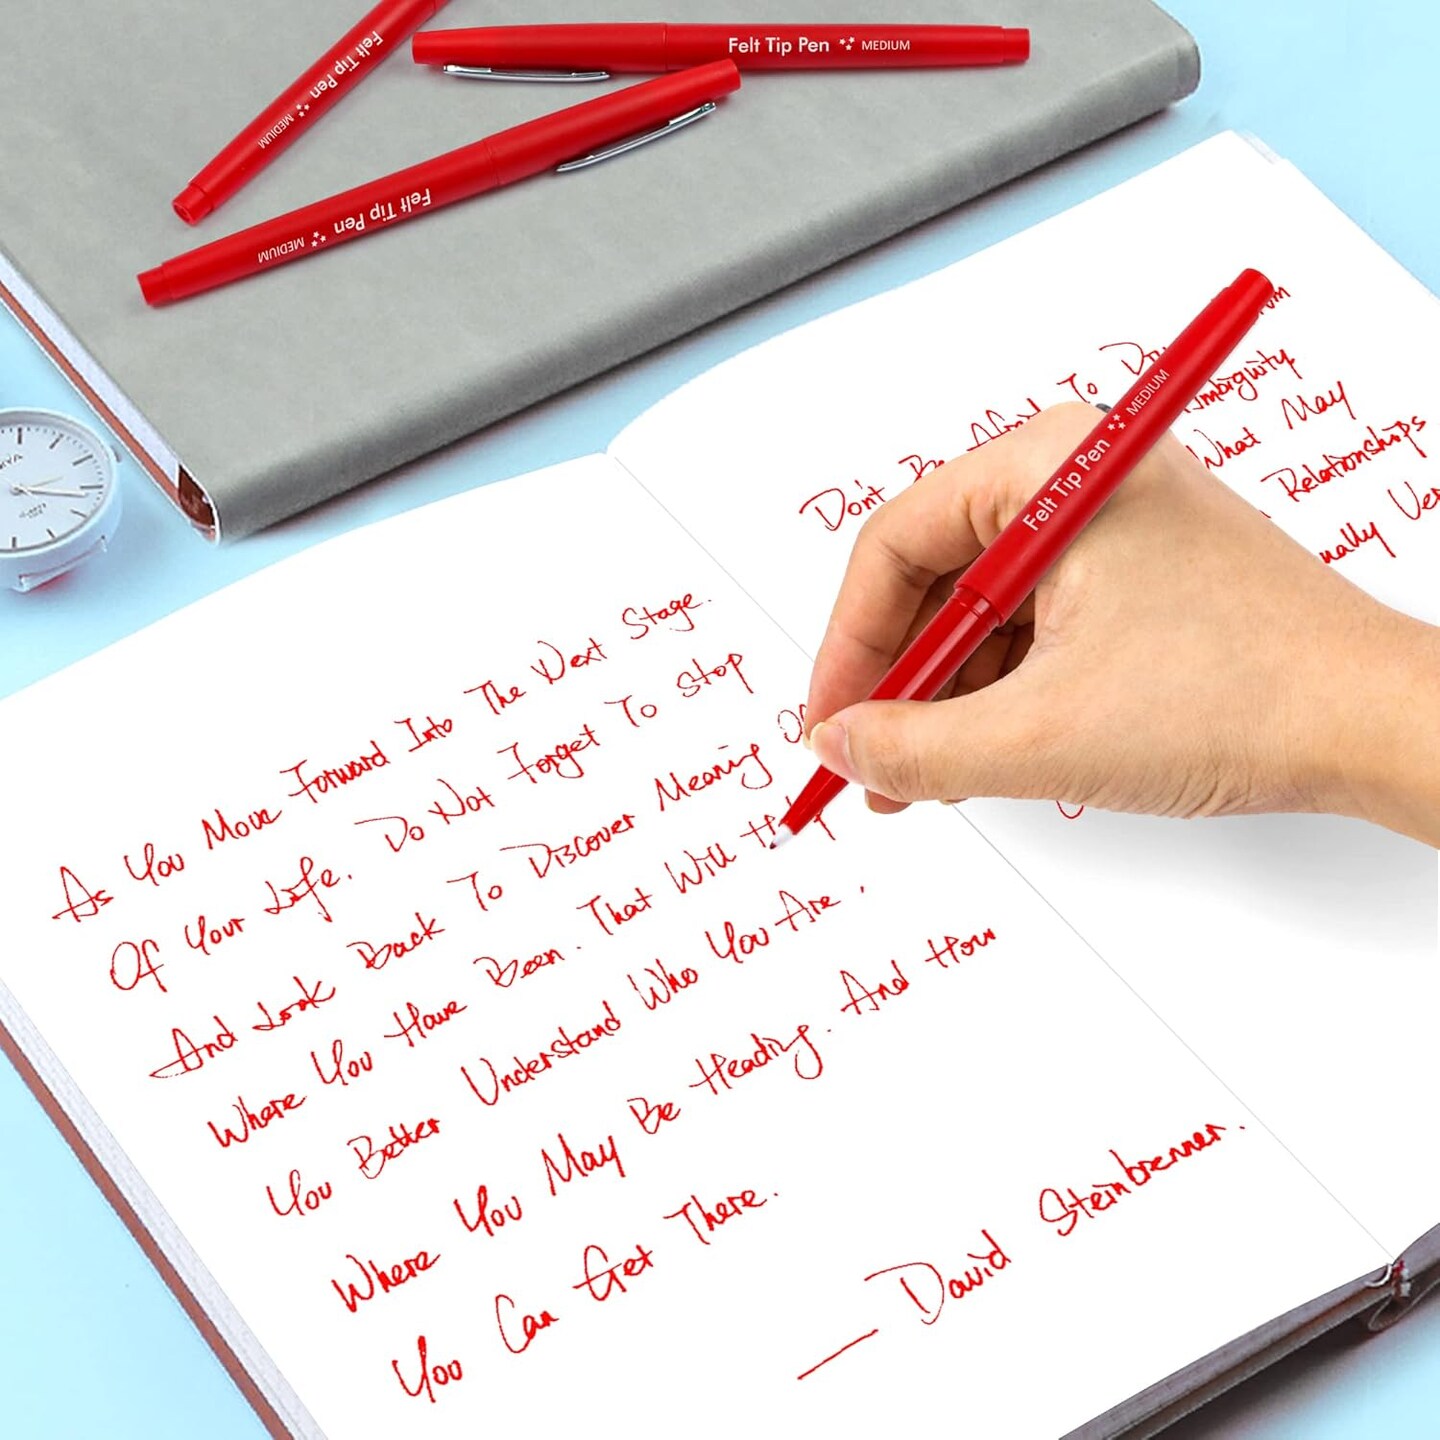 Felt Tip Pen MEDIUM
Felt Tip Pen MEDIUM
Felt Tip Pen MEDIUM
Felt Tip Pen MEDIUM
As You Move Forward Into The Next Stage.
Of Your Life. Do Not Forget To Stop
And Look Back To Discover Meaning Of
Where You Have Been. That Will
You Better Understand Who You Are,
Where You May Be Heading. And How
You Can Get There.
— David Steinbrenner.
Don't Be Afraid To
What May
Relationships